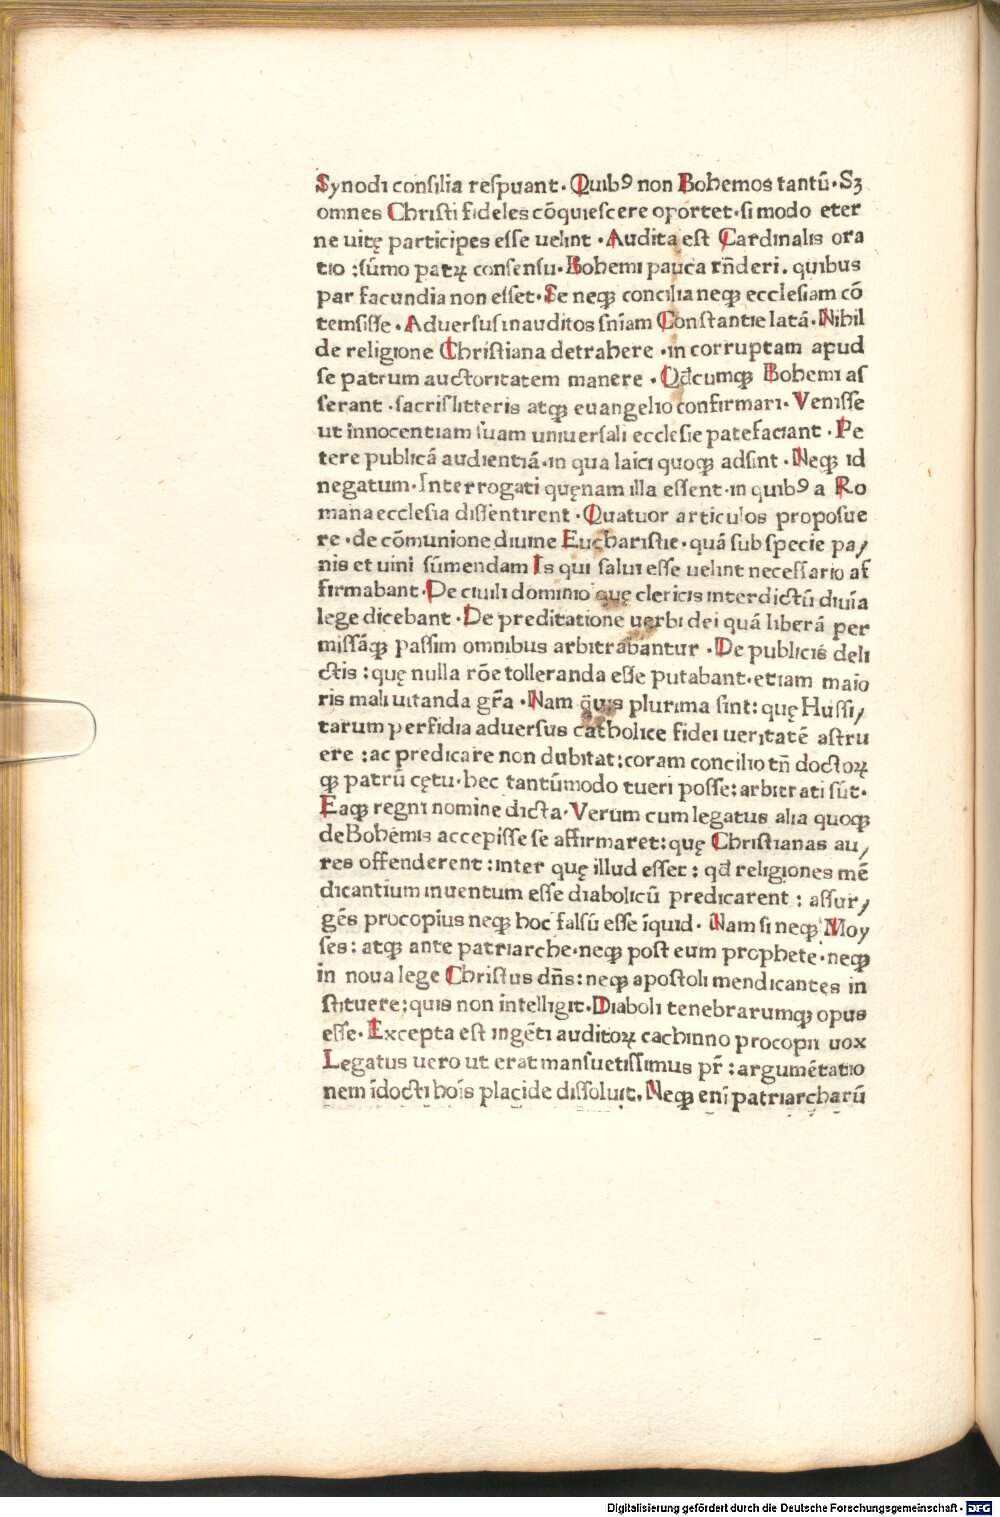 Synodi consilia respuant. Quibꝰ non Bohemos tantū. Sꝫ
omnes Christi fideles cōquiescere oportet. si modo eter
ne uitę participes esse uelint. Audita est Cardinalis ora
tio: sūmo patꝝ consensu. Bohemi pauca rn̄deri. quibus
par facundia non esset. Se neqꝫ concilia neqꝫ ecclesiam cō
temsisse. Adversus inauditos sn̄iam Constantie latā. Nihil
de religione Christiana detrahere. in corruptam apud
se patrum auctoritatem manere. Qd̄cumqꝫ Bohemi as
serant. sacris litteris atqꝫ euangelio confirmari. Venisse
ut innocentiam suam uniuersali ecclesie patefaciant. Pe
tere publicā audientiā. in qua laici quoqꝫ adsint. Neqꝫ id
negatum. Interrogati quęnam illa essent. in quibꝰ a Ro
mana ecclesia dissentirent. Quatuor articulos proposue
re. de cōmunione diuine Eucharistie. quā sub specie pa/
nis et uini sūmendam Is qui salui esse uelint necessario af
firmabant. De ciuili dominio quę clericis interdictū diuīa
lege dicebant. De preditatione uerbi dei quā liberā per
missāqꝫ passim omnibus arbitrabantur. De publicis deli
ctis: quę nulla rōe tolleranda esse putabant. etiam maio
ris mali uitanda gr̄a. Nam q̄uis plurima sint: quę Hussi/
tarum perfidia aduersus catholice fidei ueritatē astru
ere: ac predicare non dubitat: coram concilio tn̄ doctoꝝ
qꝫ patrū cętu. hec tantūmodo tueri posse: arbitrati sūt.
Eaqꝫ regni nomine dicta. Verum cum legatus alia quoqꝫ
de Bohemis accepisse se affirmaret: quę Christianas au/
res offenderent: inter quę illud esset: qd̄ religiones mē
dicantium inuentum esse diabolicū predicarent: assur/
gēs procopius neqꝫ hoc falsū esse īquid. Nam si neqꝫ Moy
ses: atqꝫ ante patriarche. neqꝫ post eum prophete. neqꝫ
in noua lege Christus dn̄s: neqꝫ apostoli mendicantes in
stituere: quis non intelligit. Diaboli tenebrarumqꝫ opus
esse. Excepta est ingēti auditoꝝ cachinno procopii uox
Legatus uero ut erat mansuetissimus pr̄: argumētatio
nem īdocti hoīs placide dissoluit. Neqꝫ enī patriarcharū
Digitalisierung gefördert durch die Deutsche Forschungsgemeinschaft - DFG